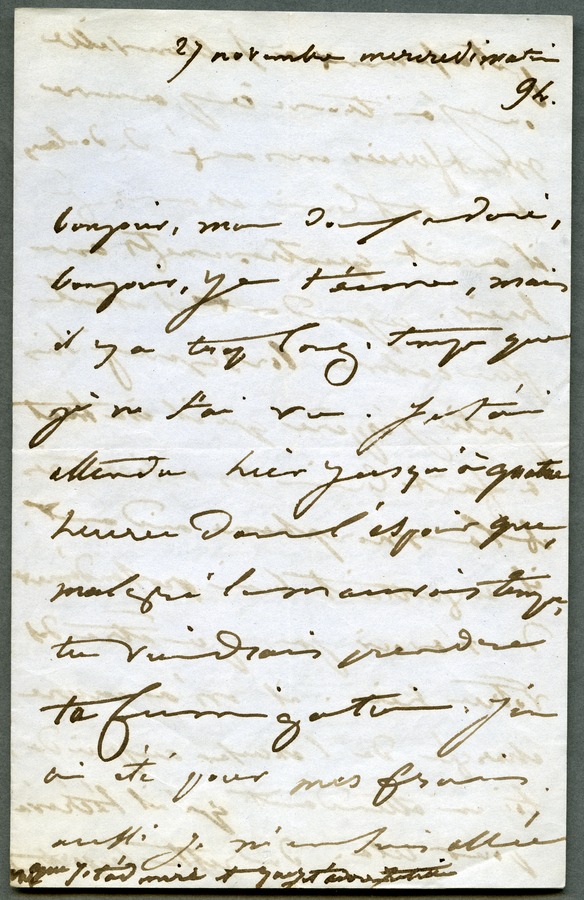 27 novembre mercredi matin
9h.
bonjour, mon doux adoré,
bonjour, je t'aime, mais
il y a trop long-temps que
je ne t'ai vu. Je t'ai
attendu hier jusqu'à quatre
heures dans l'espoir que,
malgré le mauvais temps,
tu viendrais prendre
ta fumigation. J'en
ai été pour mes frais.
aussi je m'en suis allée
que je t'admire et que je t'adore